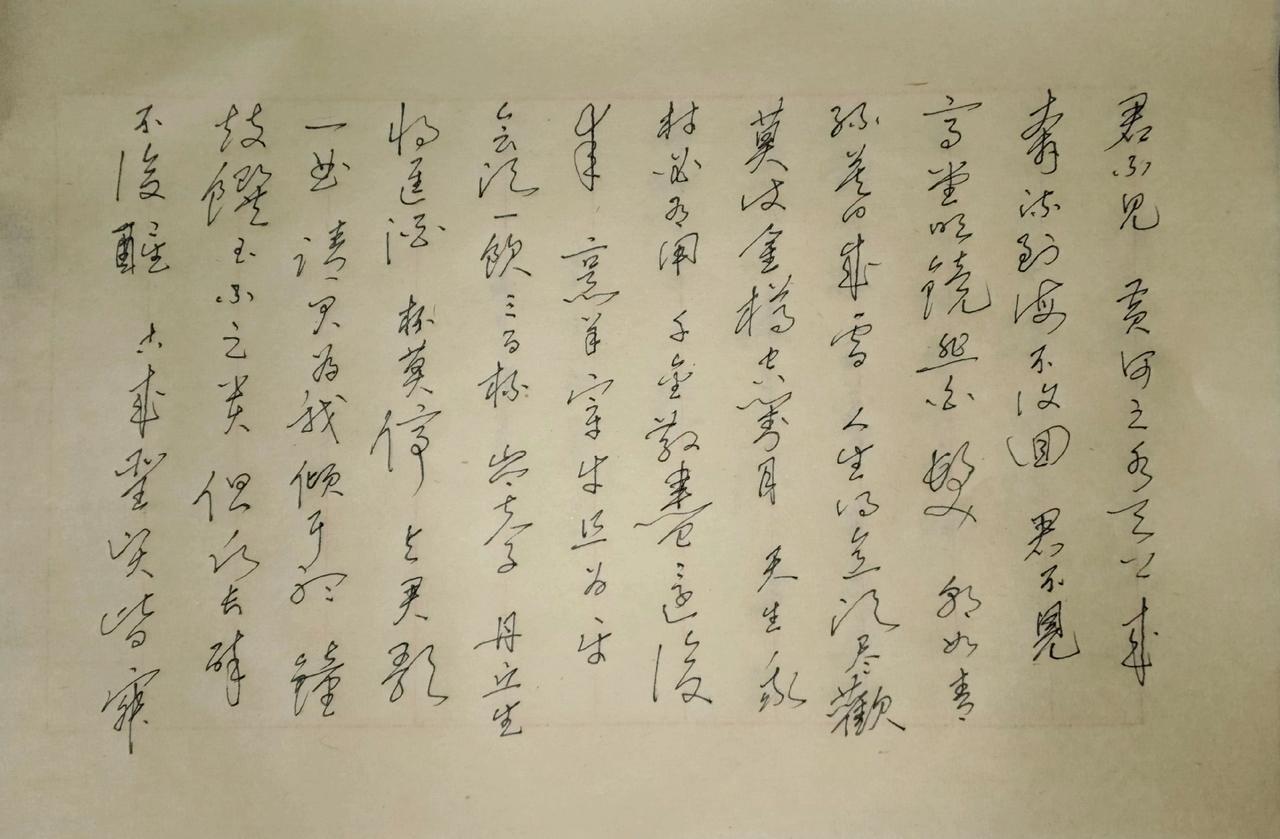 君不見 黃河之水天上來
奔流到海不復回 君不見
高堂明鏡悲白髮 朝如青
絲暮成雪 人生得意須尽歡
莫使金樽空對月 天生我
材必有用 千金散盡還復
來 烹羊宰牛且为樂
会須一飲三百杯 岑夫子 丹丘生
将進酒 杯莫停 与君歌
一曲 請君为我傾耳聽 鐘
鼓饌玉不足貴 但願長醉
不復醒 古來聖賢皆寂